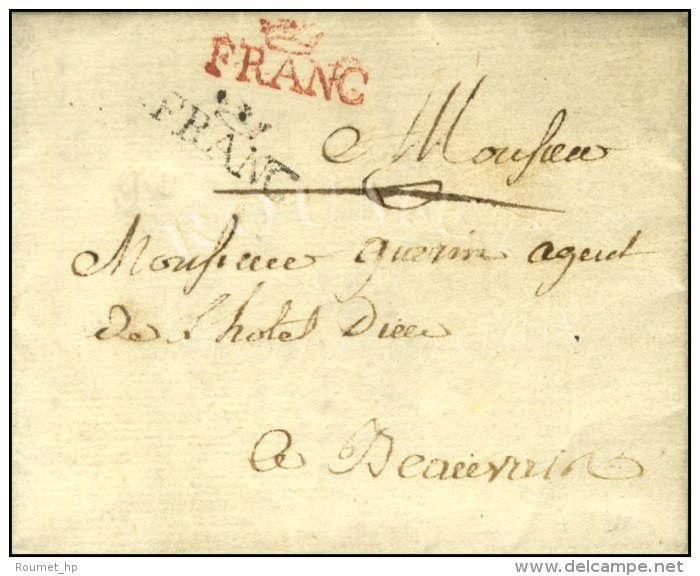 FRANC
FRANC
A Monsieur
Monsieur guerin agent
de l'hotel Dieu
a Beauvais
Roumet_hp
delcampe.net